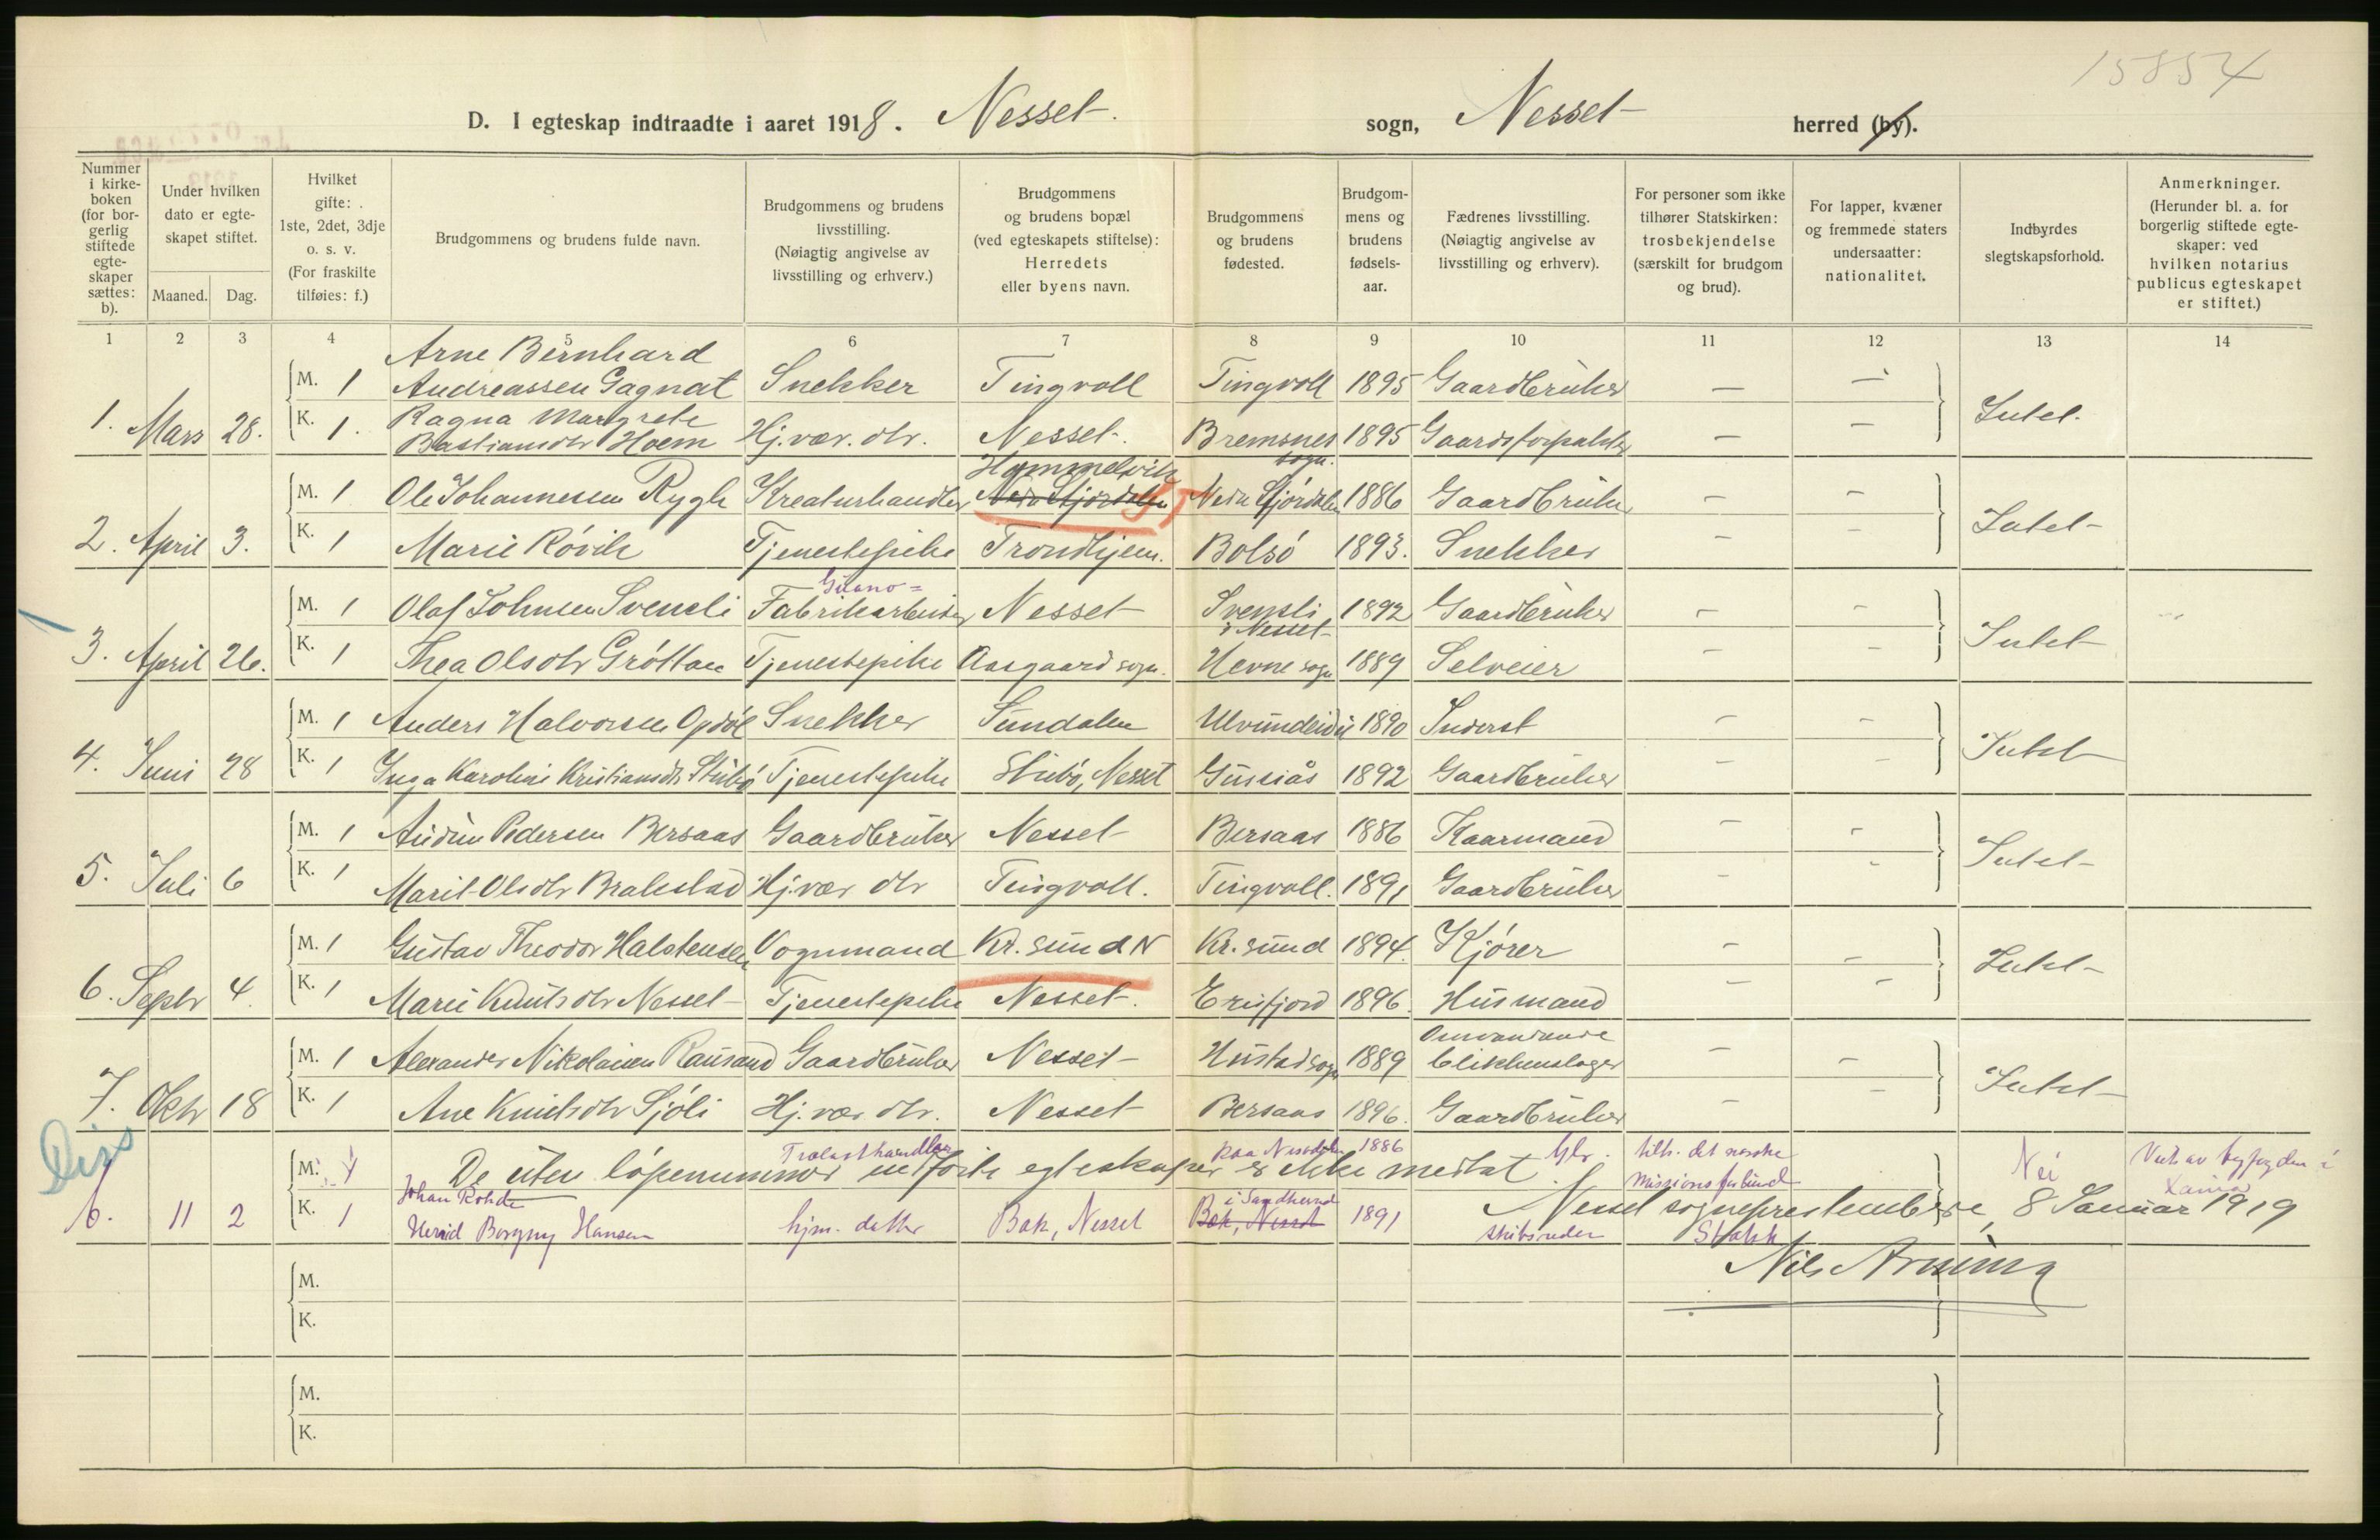 15854
D. I egteskap indtraadte i aaret 1918. Nesset sogn, Nesset herred (by).
Nummer i kirke-boken (for bor-gerlig stiftede egte-skaper sættes: b).
Under hvilken dato er egte-skapet stiftet.
Maaned. Dag.
Hvilket gifte: 1ste, 2det, 3dje o. s. v. (For fraskilte tilføies: f.)
Brudgommens og brudens fulde navn.
Brudgommens og brudens livsstilling. (Nøiagtig angivelse av livsstilling og erhverv.)
Brudgommens og brudens bopæl (ved egteskapets stiftelse): Herredets eller byens navn.
Brudgommens og brudens fødested.
Brudgom-mens og brudens fødsels-aar.
Fædrenes livsstilling. (Nøiagtig angivelse av livsstilling og erhverv).
For personer som ikke tilhører Statskirken: trosbekjendelse (særskilt for brudgom og brud).
For lapper, kvæner og fremmede staters undersaatter: nationalitet.
Indbyrdes slegtskapsforhold.
Anmerkninger. (Herunder bl. a. for borgerlig stiftede egte-skaper: ved hvilken notarius publicus egteskapet er stiftet.)
1 2 3 4 5 6 7 8 9 10 11 12 13 14
Arne Bernhard
M. 1 Andreassen Gagnat Snekker Tingvoll Tingvoll 1895 Gaardbruker — —
1. Mars 28. K. 1. Ragna Margrete Bastiansdtr Hoem Hj.vær. dtr. Nesset. Bremsnes sogn. 1895 Gaardsforpakter — — Intet.
M. 1 Ole Johannessen Rygh Kreaturhandler Hommelvik Nedre Stjørdalen Nedre Stjørdalen 1886 Gaardbruker — —
2. April 3. K. 1 Marie Røvik Tjenestepike Trondhjem. Bolsø 1893. Snekker — — Intet
M. 1 Olaf Johnsen Svensli Guano= Fabrikarbeider Nesset Svensli i Nesset 1892 Gaardbruker — —
3. April 26. K. 1 Thea Olsdtr Grøttan Tjenestepike Aasgaard sogn. Hevne sogn 1889 Selveier — — Intet
M. 1 Anders Halvorsen Opdøl Snekker Sundalen Ulvundeidet 1890 Inderst — —
4. Juni 28 K. 1 Inga Karoline Kristiansdtr Stubø Tjenestepike Stubø, Nesset Gussiås 1892 Gaardbruker — — Intet
M. 1 Audun Pedersen Bersaas Gaardbruker Nesset Bersaas 1886 Kaarmand — —
5. Juli 6 K. 1 Marit Olsdtr Brakstad Hj.vær dtr Tingvoll. Tingvoll. 1891 Gaardbruker — — Intet
M. 1 Gustav Theodor Halstensen Vognmand Kr.sund N Kr.sund 1894. Kjører — —
6. Septr 4. K. 1 Marie Knutsdtr Nesset Tjenestepike Nesset. Erisfjord 1896. Husmand — — Intet
M. 1 Alexander Nikolaisen Rausand Gaardbruker Nesset Hustad sogn 1889 Omvandrende blikkenslager — —
7. Oktr 18 K. 1 Ane Knutsdtr Sjøli Hj.vær dtr. Nesset Bersaas 1896. Gaardbruker — — Intet
Diss
M. 1 Trælasthandler 1886 Gbr. tilh. det norske missionsforbund Nei
De uten løpenummer indførte egteskaper er ikke medtat.
Johan Rohde
b. 11 2 K. 1 Hernid Borgny Hansen hjm. datter Bak, Nesset i Sandhund Bak, Nesset 1891 skibsreder Statsk
Nesset sogneprestembede, 8 Januar 1919
Nils Arnung
M.
K.
M.
K.